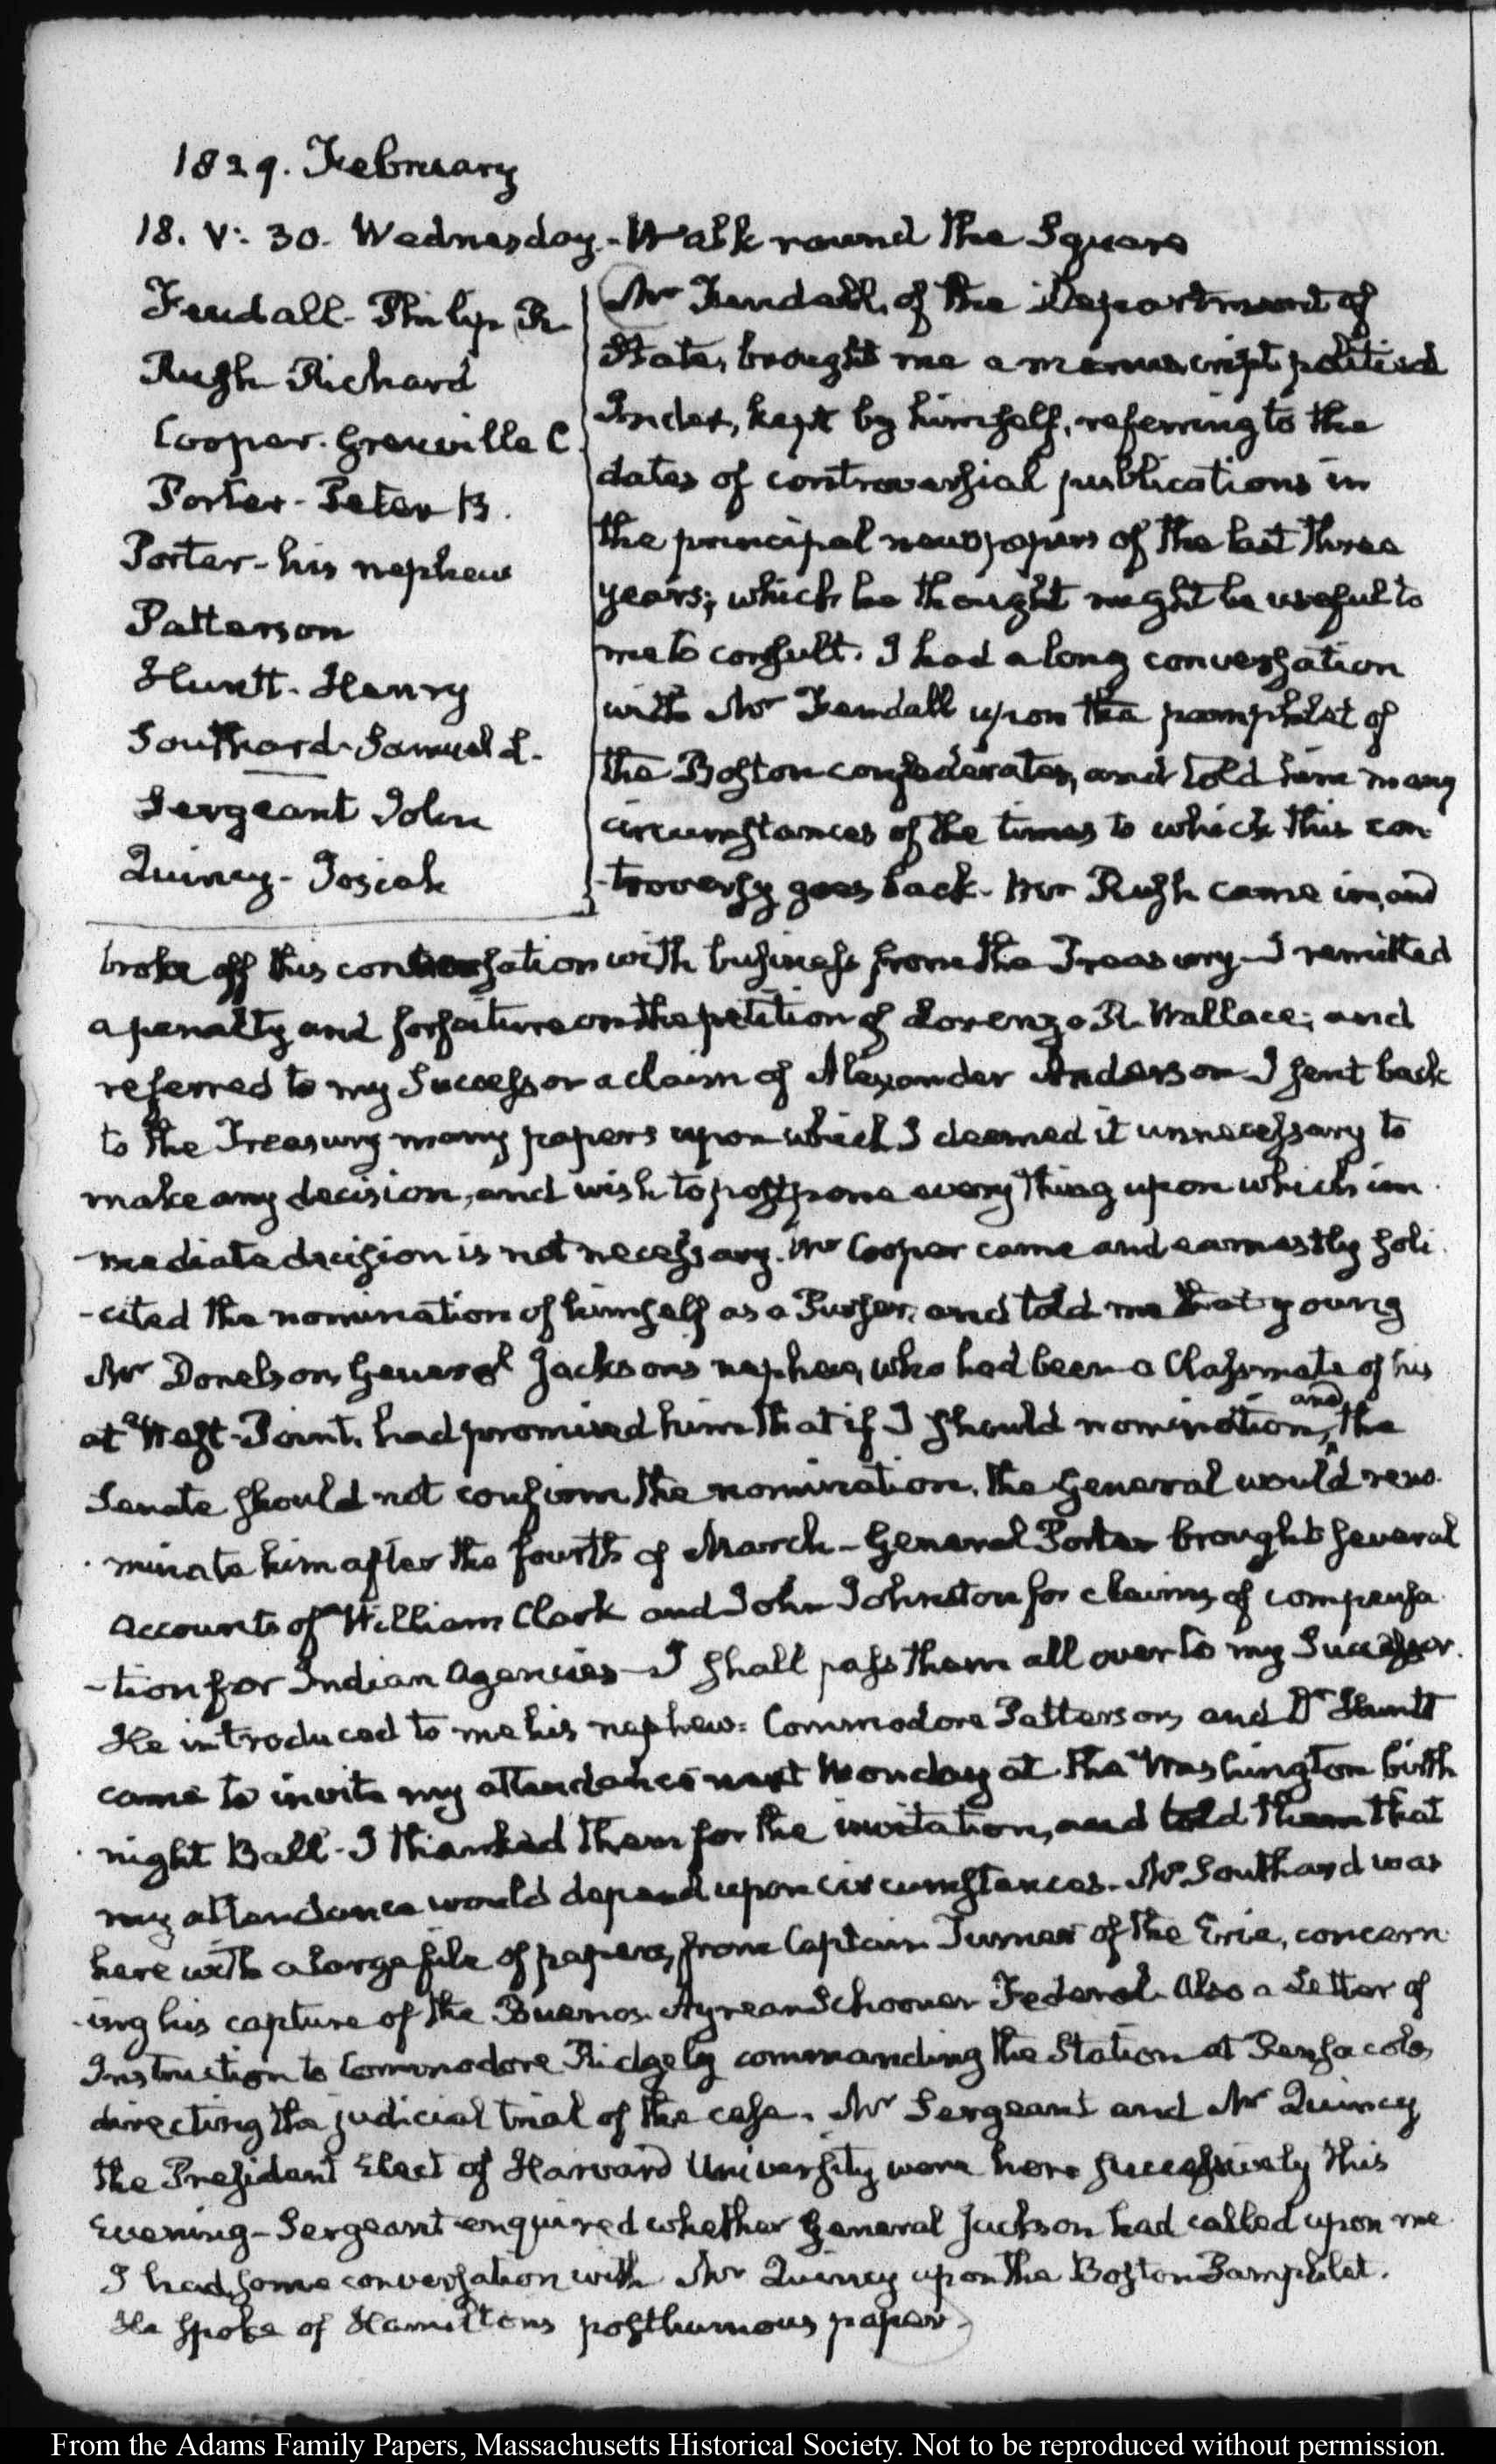 1829. February
18. V: 30. Wednesday - Walk round the Square
Fendall - Philip R
Rush Richard
Cooper. Grenville C.
Porter - Peter B.
Porter - his nephew
Patterson
Huntt - Henry
Southard - Samuel L.
Sergeant John
Quincy - Josiah
Mr Fendall, of the Department of
State, brought me a manuscript political
Index, kept by himself, referring to the
dates of controversial publications in
the principal newspapers of the last three
years; which he thought might be useful to
me to consult. I had a long conversation
with Mr Fendall upon the pamphlet of
the Boston confederates, and told him many
circumstances of the times to which this con
-troversy goes back - Mr Rush came in, and
broke off this conversation with business from the Treasury - I remitted
a penalty and forfeiture on the petition of Lorenzo R. Wallace; and
referred to my Successor a claim of Alexander Anderson - I sent back
to the Treasury many papers upon which I deemed it unnecessary to
make any decision, and wish to postpone every thing upon which im
-mediate decision is not necessary. Mr Cooper came and earnestly soli
-cited the nomination of himself as a Purser, and told me that young
Mr Donelson, General Jacksons nephew, who had been a Classmate of his
at West-Point, had promised him that if I should nomination, and the
Senate should not confirm the nomination, the General would reno
-minate him after the fourth of March - General Porter brought several
accounts of William Clark and John Johnston for claims of compensa
-tion for Indian Agencies - I shall pass them all over to my Successor.
He introduced to me his nephew: Commodore Patterson, and Dr Huntt
came to invite my attendance next Monday at the Washington birth
night Ball - I thanked them for the invitation, and told them that
my attendance would depend upon circumstances - Mr Southard was
here with a large file of papers, from Captain Turner of the Erie, concern
-ing his capture of the Buenos-Ayrean Schooner Federal. Also a Letter of
Instruction to Commodore Ridgely commanding the Station at Pensacola,
directing the judicial trial of the case. Mr Sergeant and Mr Quincy
the President Elect of Harvard University were here successively this
Evening - Sergeant enquired whether General Jackson had called upon me
I had some conversation with Mr Quincy upon the Boston Pamphlet.
He spoke of Hamiltons posthumous paper -
From the Adams Family Papers, Massachusetts Historical Society. Not to be reproduced without permission.